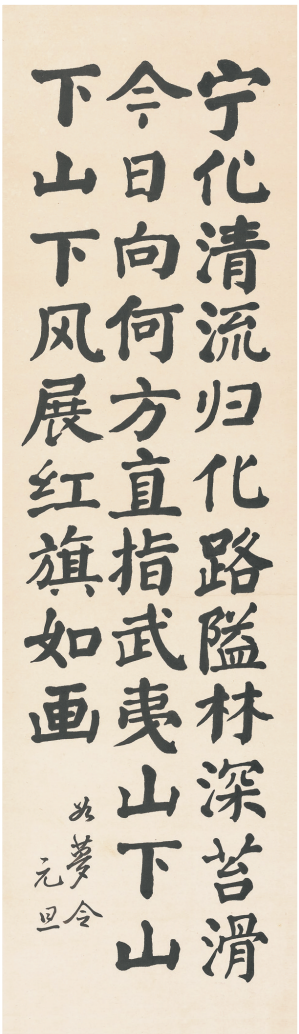 宁化清流归化路隘林深苔滑
今日向何方直指武夷山下山
下山下风展红旗如画
如梦令
元旦